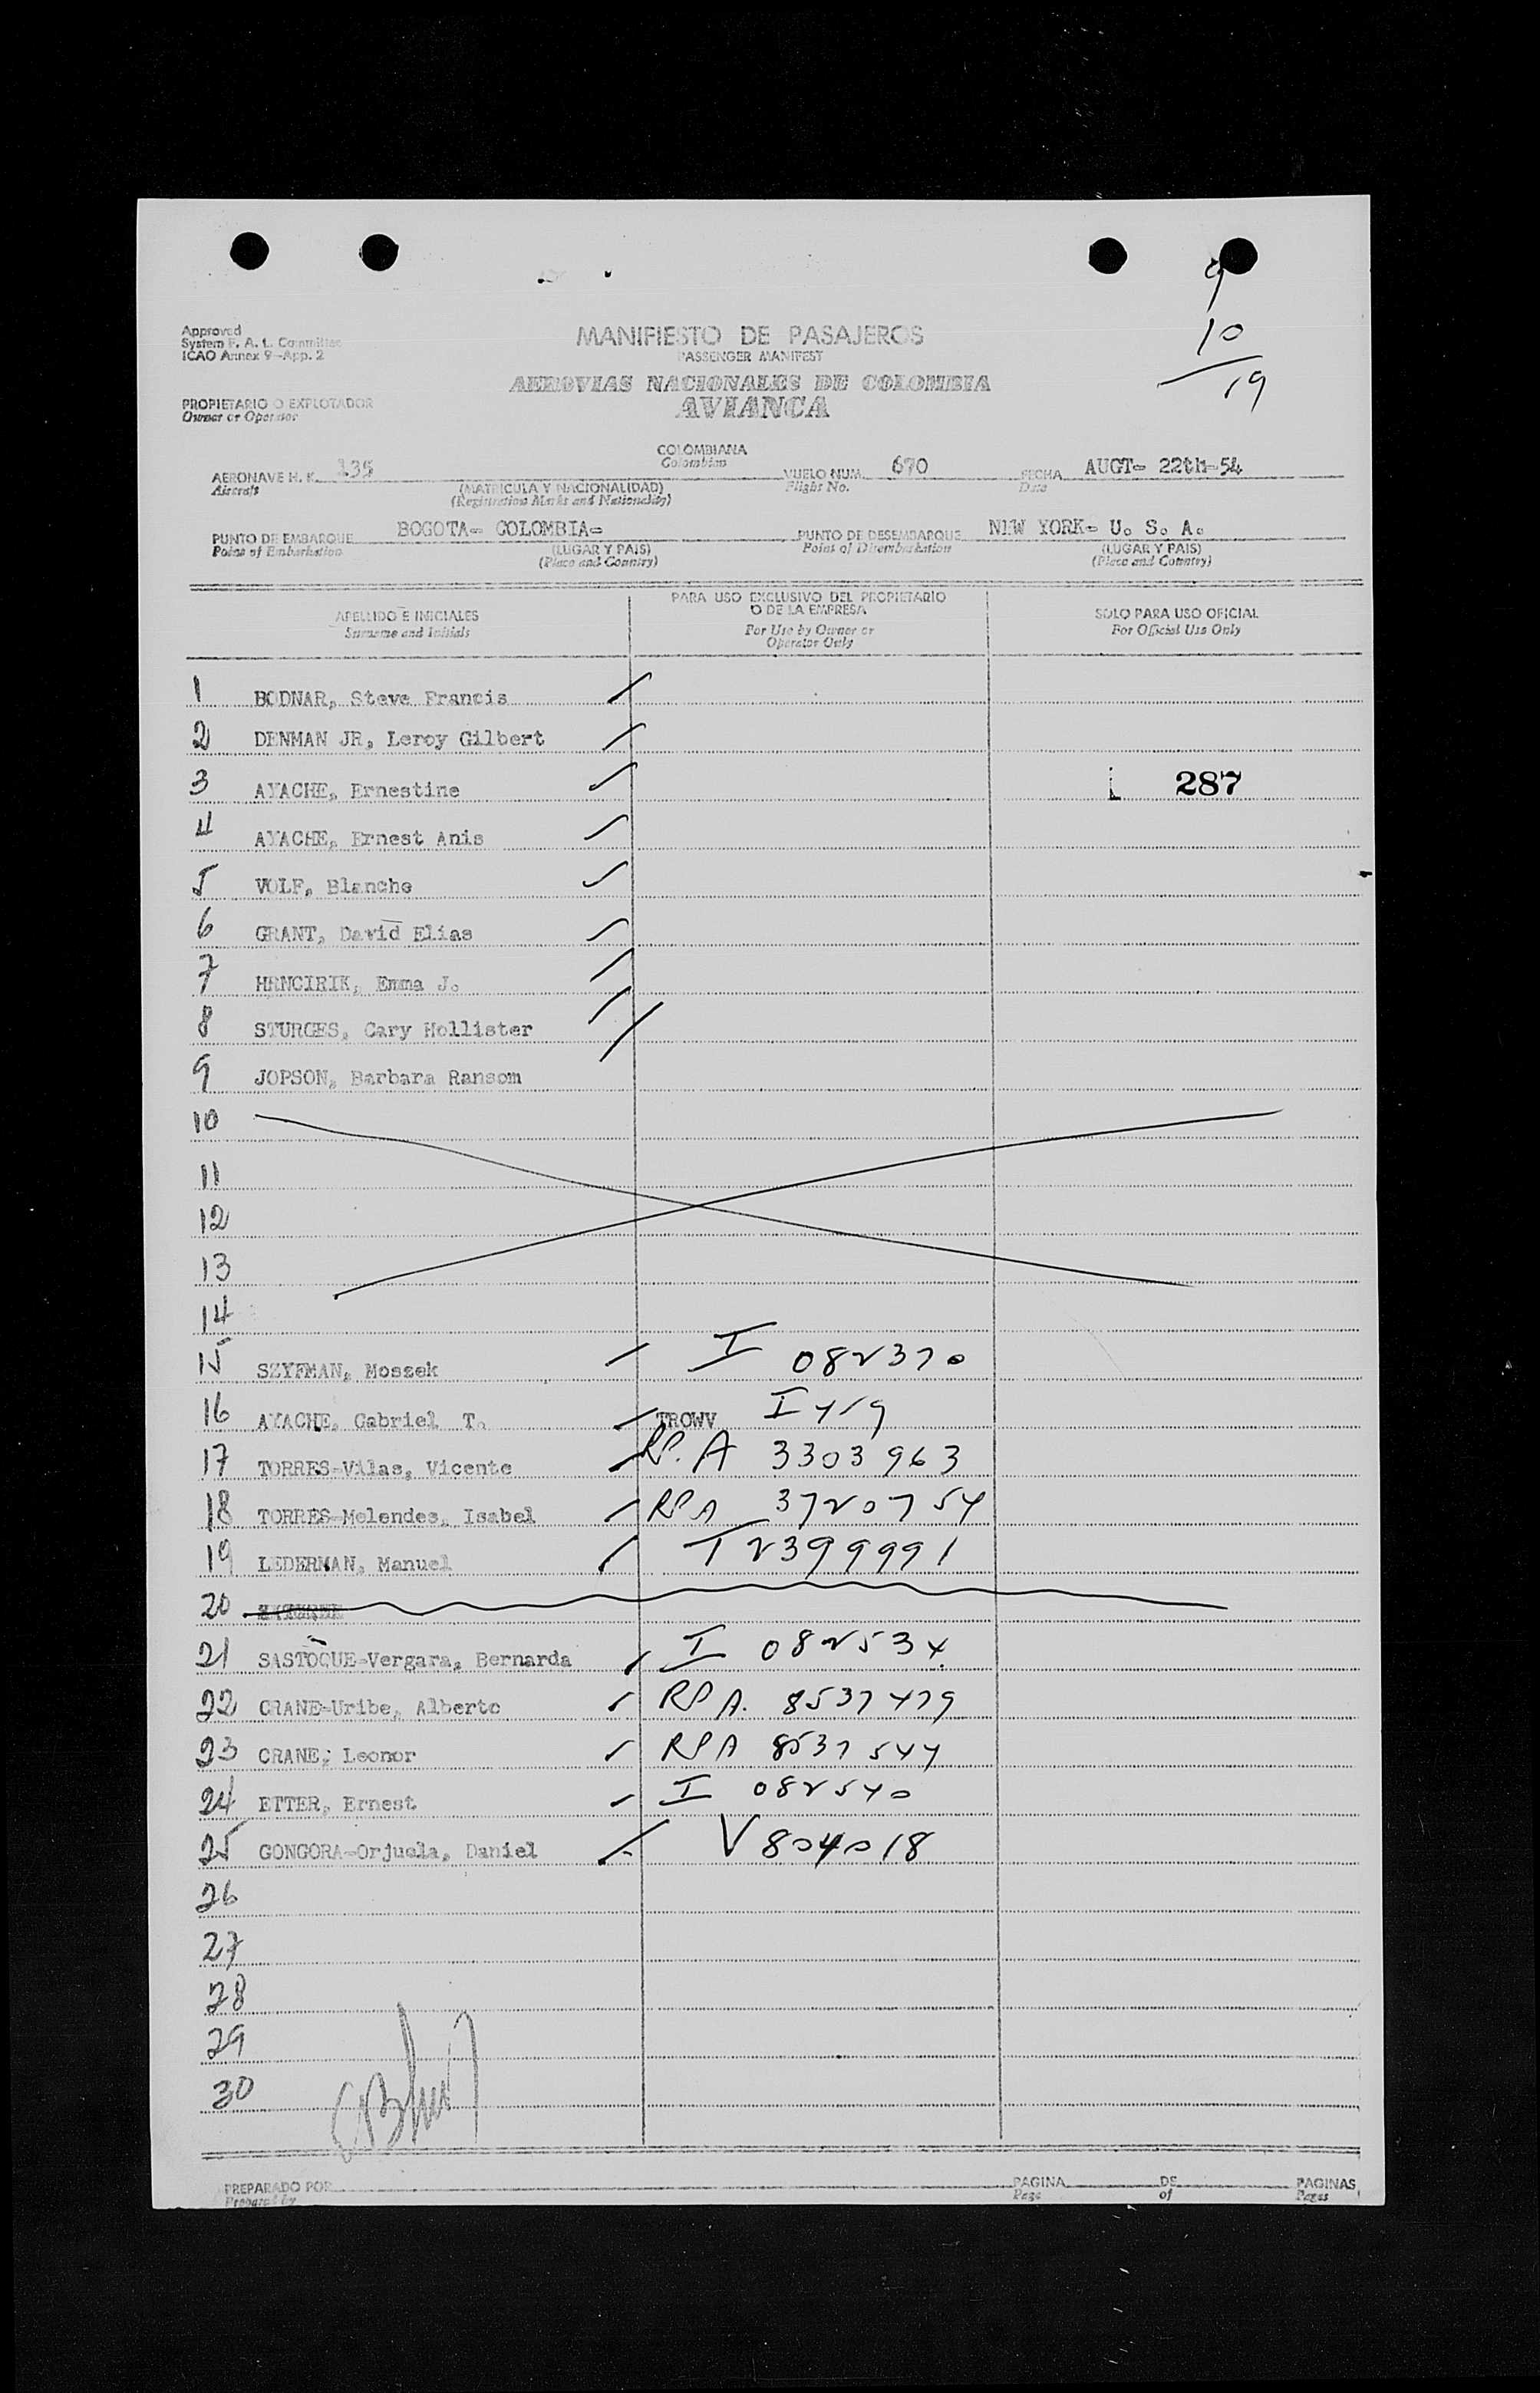 9
10
19
Approved
System F. A. L. Committee
ICAO Annex 9-App. 2
MANIFIESTO DE PASAJEROS
PASSENGER MANIFEST
AEROVIAS NACIONALES DE COLOMBIA
AVIANCA
PROPIETARIO O EXPLOTADOR
Owner or Operator
COLOMBIANA
Colombian
AERONAVE H. K. 135 VUELO NUM. 670 FECHA AUGT- 22th-54
Aircraft (MATRICULA Y NACIONALIDAD) Flight No. Date
(Registration Marks and Nationality)
PUNTO DE EMBARQUE BOGOTA- COLOMBIA- PUNTO DE DESEMBARQUE NEW YORK- U. S. A.
Point of Embarkation (LUGAR Y PAIS) Point of Disembarkation (LUGAR Y PAIS)
(Place and Country) (Place and Country)
APELLIDO E INICIALES
Surname and Initials
PARA USO EXCLUSIVO DEL PROPIETARIO
O DE LA EMPRESA
For Use by Owner or
Operator Only
SOLO PARA USO OFICIAL
For Official Use Only
1 BODNAR, Steve Francis
2 DENMAN JR, Leroy Gilbert
3 AYACHE, Ernestine 287
4 AYACHE, Ernest Anis
5 VOLF, Blanche
6 GRANT, David Elias
7 HRNCIRIK, Emma J.
8 STURGES, Cary Hollister
9 JOPSON, Barbara Ransom
10
11
12
13
14
15 SZYFMAN, Moszek I 082370
16 AYACHE, Gabriel T. TROWV I 419
17 TORRES-Vilas, Vicente RP.A 3303963
18 TORRES-Melendes, Isabel RPA 3720754
19 LEDERMAN, Manuel T2399991
20
21 SASTOQUE-Vergara, Bernarda I 082534
22 CRANE-Uribe, Alberto RPA. 8537479
23 CRANE, Leonor RPA 8537544
24 ETTER, Ernest I 082540
25 GONGORA-Orjuela, Daniel V804018
26
27
28
29
30
PREPARADO POR PAGINA DE PAGINAS
Prepared by Page of Pages